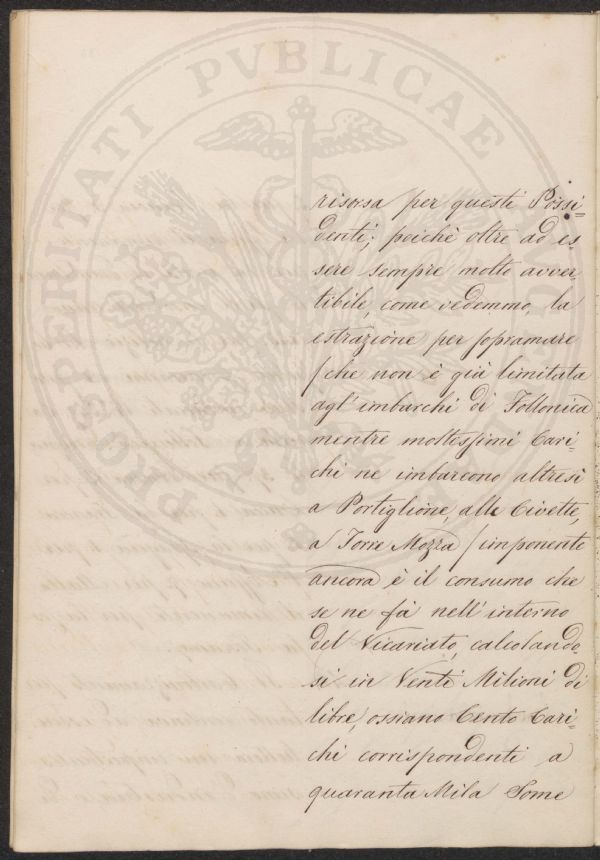 PROSPERITATI PVBLICAE
risorsa per questi Possi=
denti; poichè oltre ad es=
sere sempre molto avver=
tibile, come vedemmo, la
estrazione per sopramare
(che non è già limitata
agl'imbarchi di Follonica
mentre moltessimi Cari=
chi ne imbarcono altresì
a Portiglione, alle Civette,
a Torre Mozza) imponente
ancora è il consumo che
se ne fà nell'interno
del Vicariato, calcolando=
si in Venti Milioni di
libre, ossiano Cento Cari=
chi corrispondenti a
quaranta Mila Some